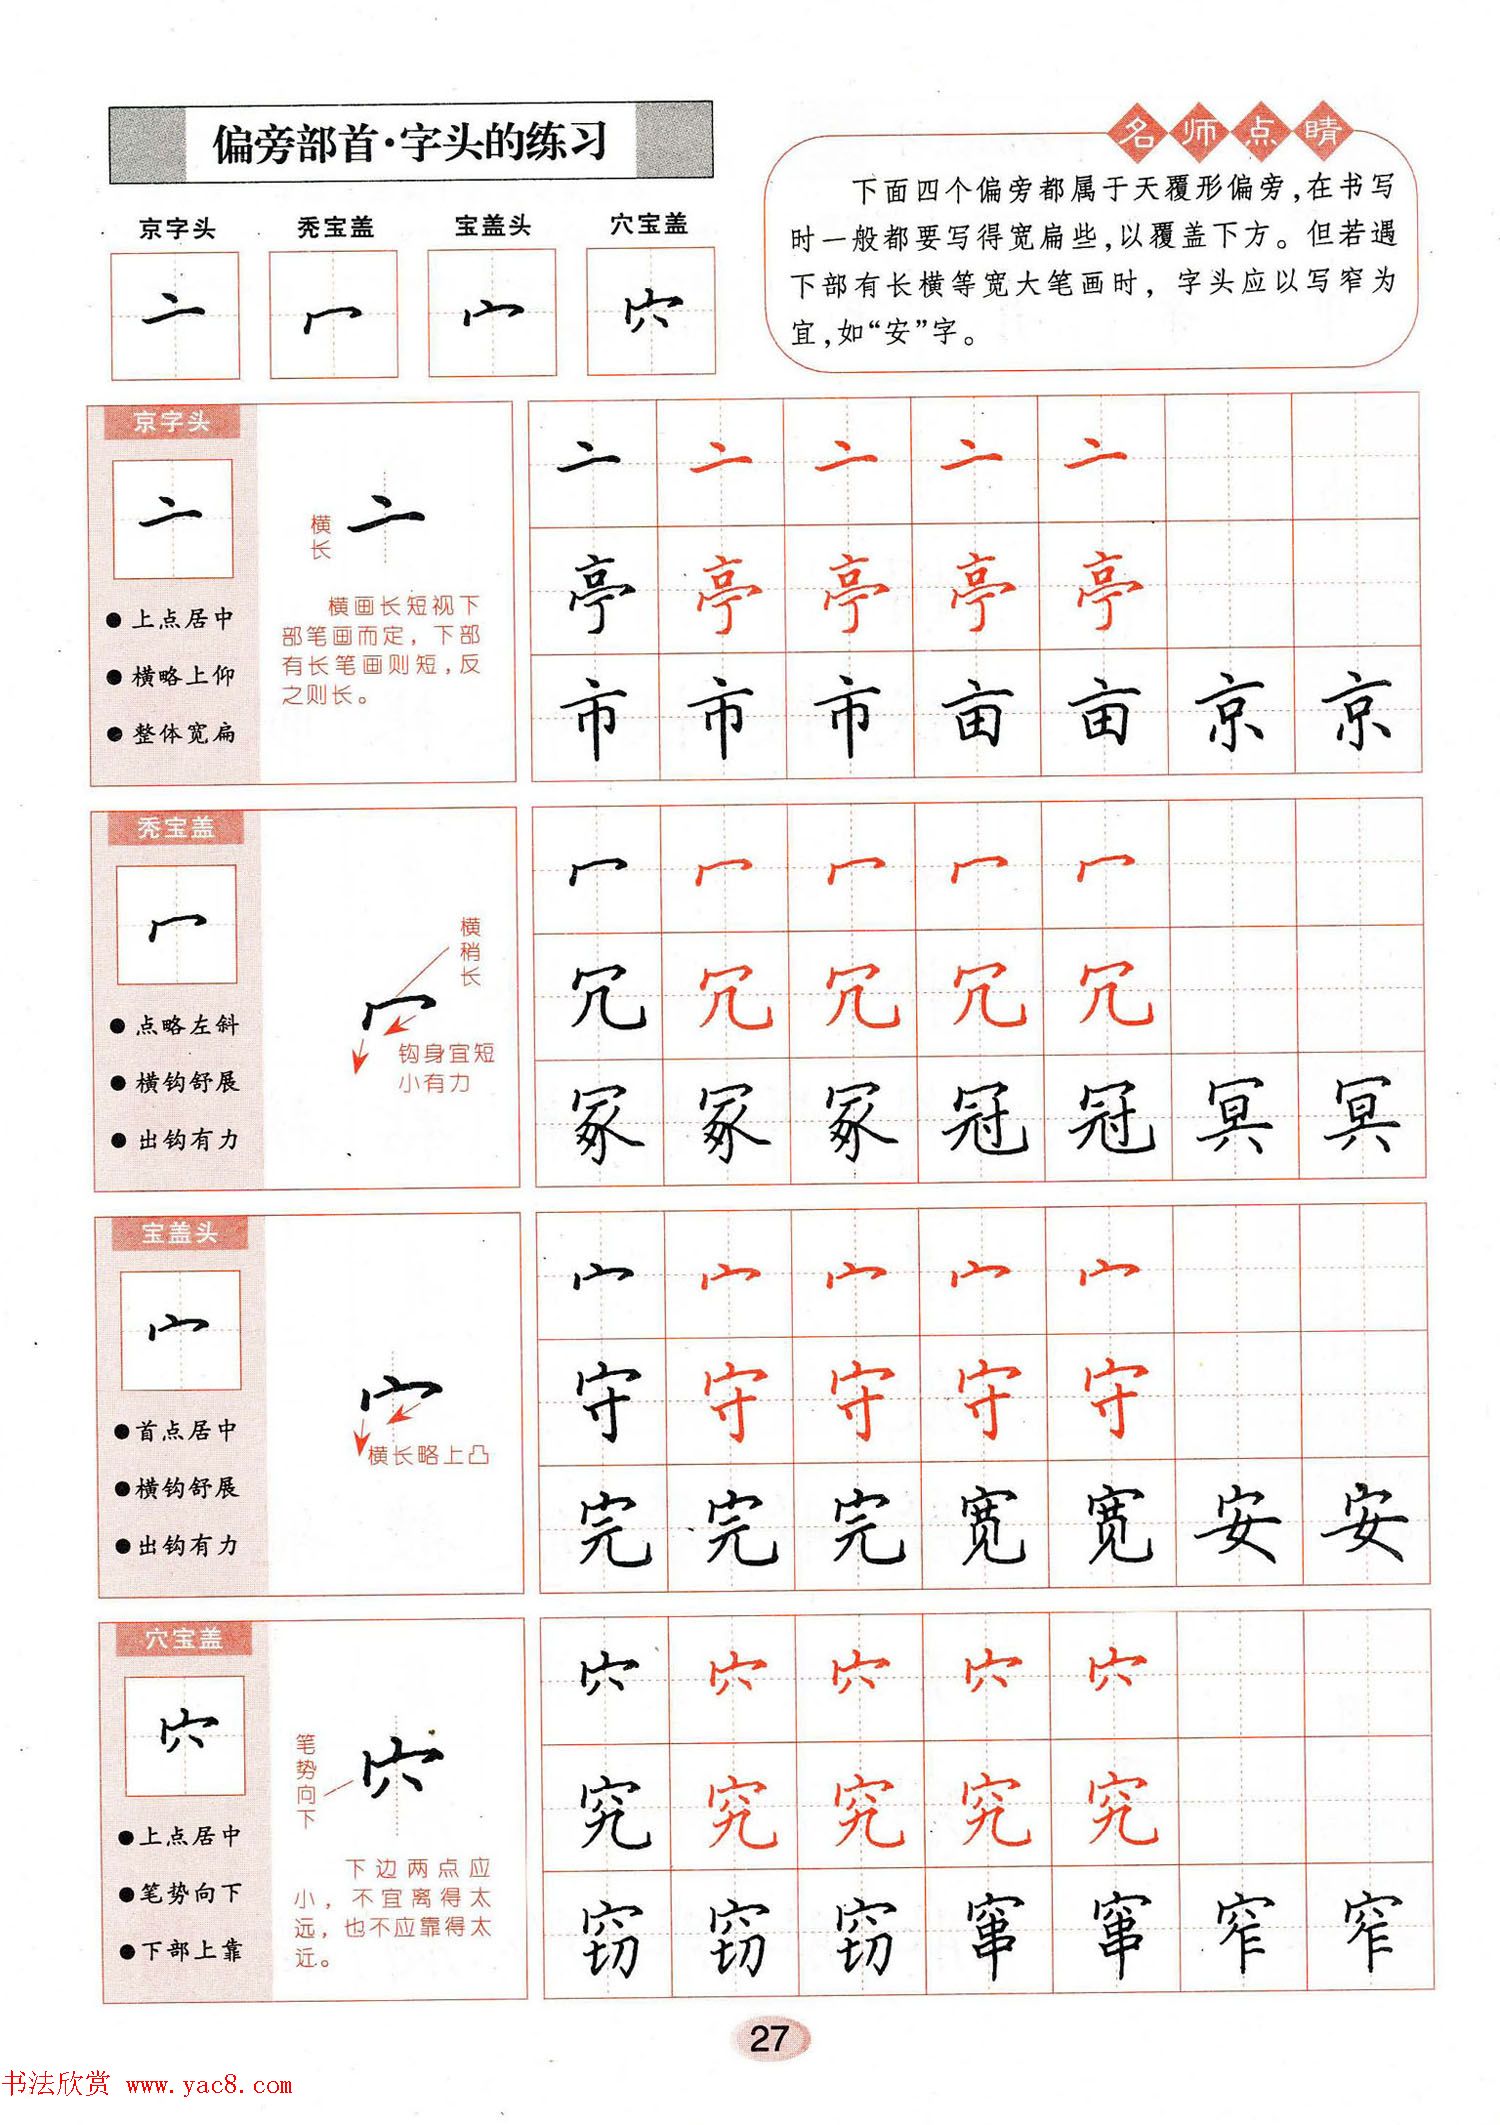 偏旁部首·字头的练习
名师点睛
下面四个偏旁都属于天覆形偏旁,在书写
时一般都要写得宽扁些,以覆盖下方。但若遇
下部有长横等宽大笔画时,字头应以写窄为
宜,如“安”字。
京字头 秃宝盖 宝盖头 穴宝盖
亠 冖 宀 穴
京字头
亠
●上点居中
●横略上仰
●整体宽扁
横长
亠
横画长短视下
部笔画而定,下部
有长笔画则短,反
之则长。
亠 亠 亠 亠 亠
亭 亭 亭 亭 亭
市 市 市 亩 亩 京 京
秃宝盖
冖
●点略左斜
●横钩舒展
●出钩有力
横稍长
冖
钩身宜短
小有力
冖 冖 冖 冖 冖
冗 冗 冗 冗 冗
冢 冢 冢 冠 冠 冥 冥
宝盖头
宀
●首点居中
●横钩舒展
●出钩有力
宀
横长略上凸
宀 宀 宀 宀 宀
守 守 守 守 守
完 完 完 宽 宽 安 安
穴宝盖
穴
●上点居中
●笔势向下
●下部上靠
笔势向下
穴
下边两点应
小,不宜离得太
远,也不应靠得太
近。
穴 穴 穴 穴 穴
究 究 究 究 究
窃 窃 窃 窜 窜 窄 窄
27
书法欣赏 www.yac8.com